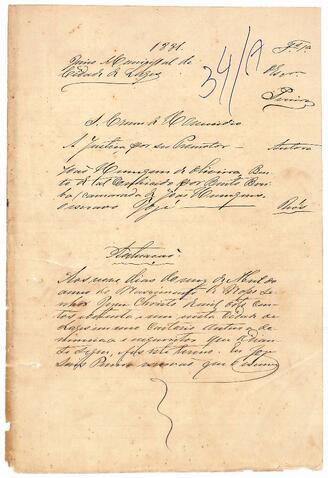 1881.
Fl. 1a
Juizo Municipal da
Cidade de Lages
34/A
Escr.
Pereira
S. Crime de Homicidio
A Justiça por seu Promotor - Autora
João Henriques de Oliveira, Ben-
to de tal conhecido por Bento
camarada de João Henriques,
e escravo José Réos
Autuação
Aos nove dias do mez de Abril do
anno do Nascimento de Nosso Se-
nhor Jesus Christo de mil oito cen-
tos oitenta e um nesta Cidade de
Lages em meu Cartorio autuo a
denuncia e inquerito que adian-
te segue, faço este termo. Eu José
Luis Pereira escrivão que escrevi